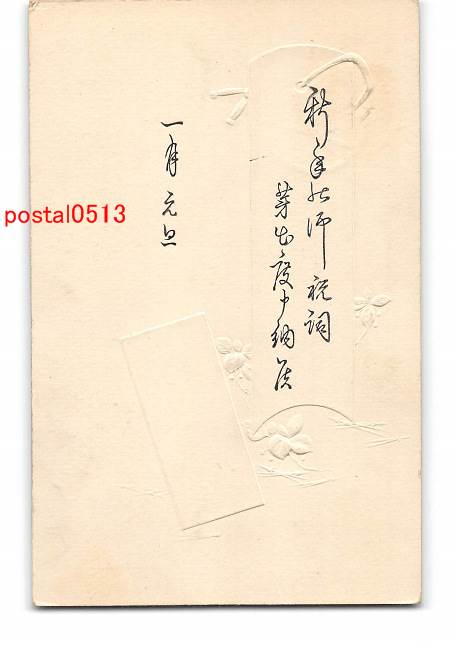 新年の御祝詞
芽出度申納候
一月元旦
postal0513